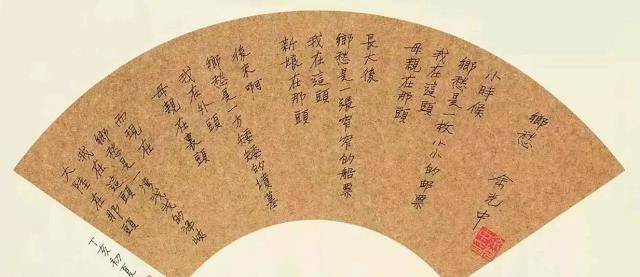 鄉愁
余光中
小時候
鄉愁是一枚小小的郵票
我在這頭
母親在那頭
長大後
鄉愁是一張窄窄的船票
我在這頭
新娘在那頭
後來啊
鄉愁是一方矮矮的墳墓
我在外頭
母親在裏頭
而現在
鄉愁是一灣淺淺的海峽
我在這頭
大陸在那頭
丁亥初夏